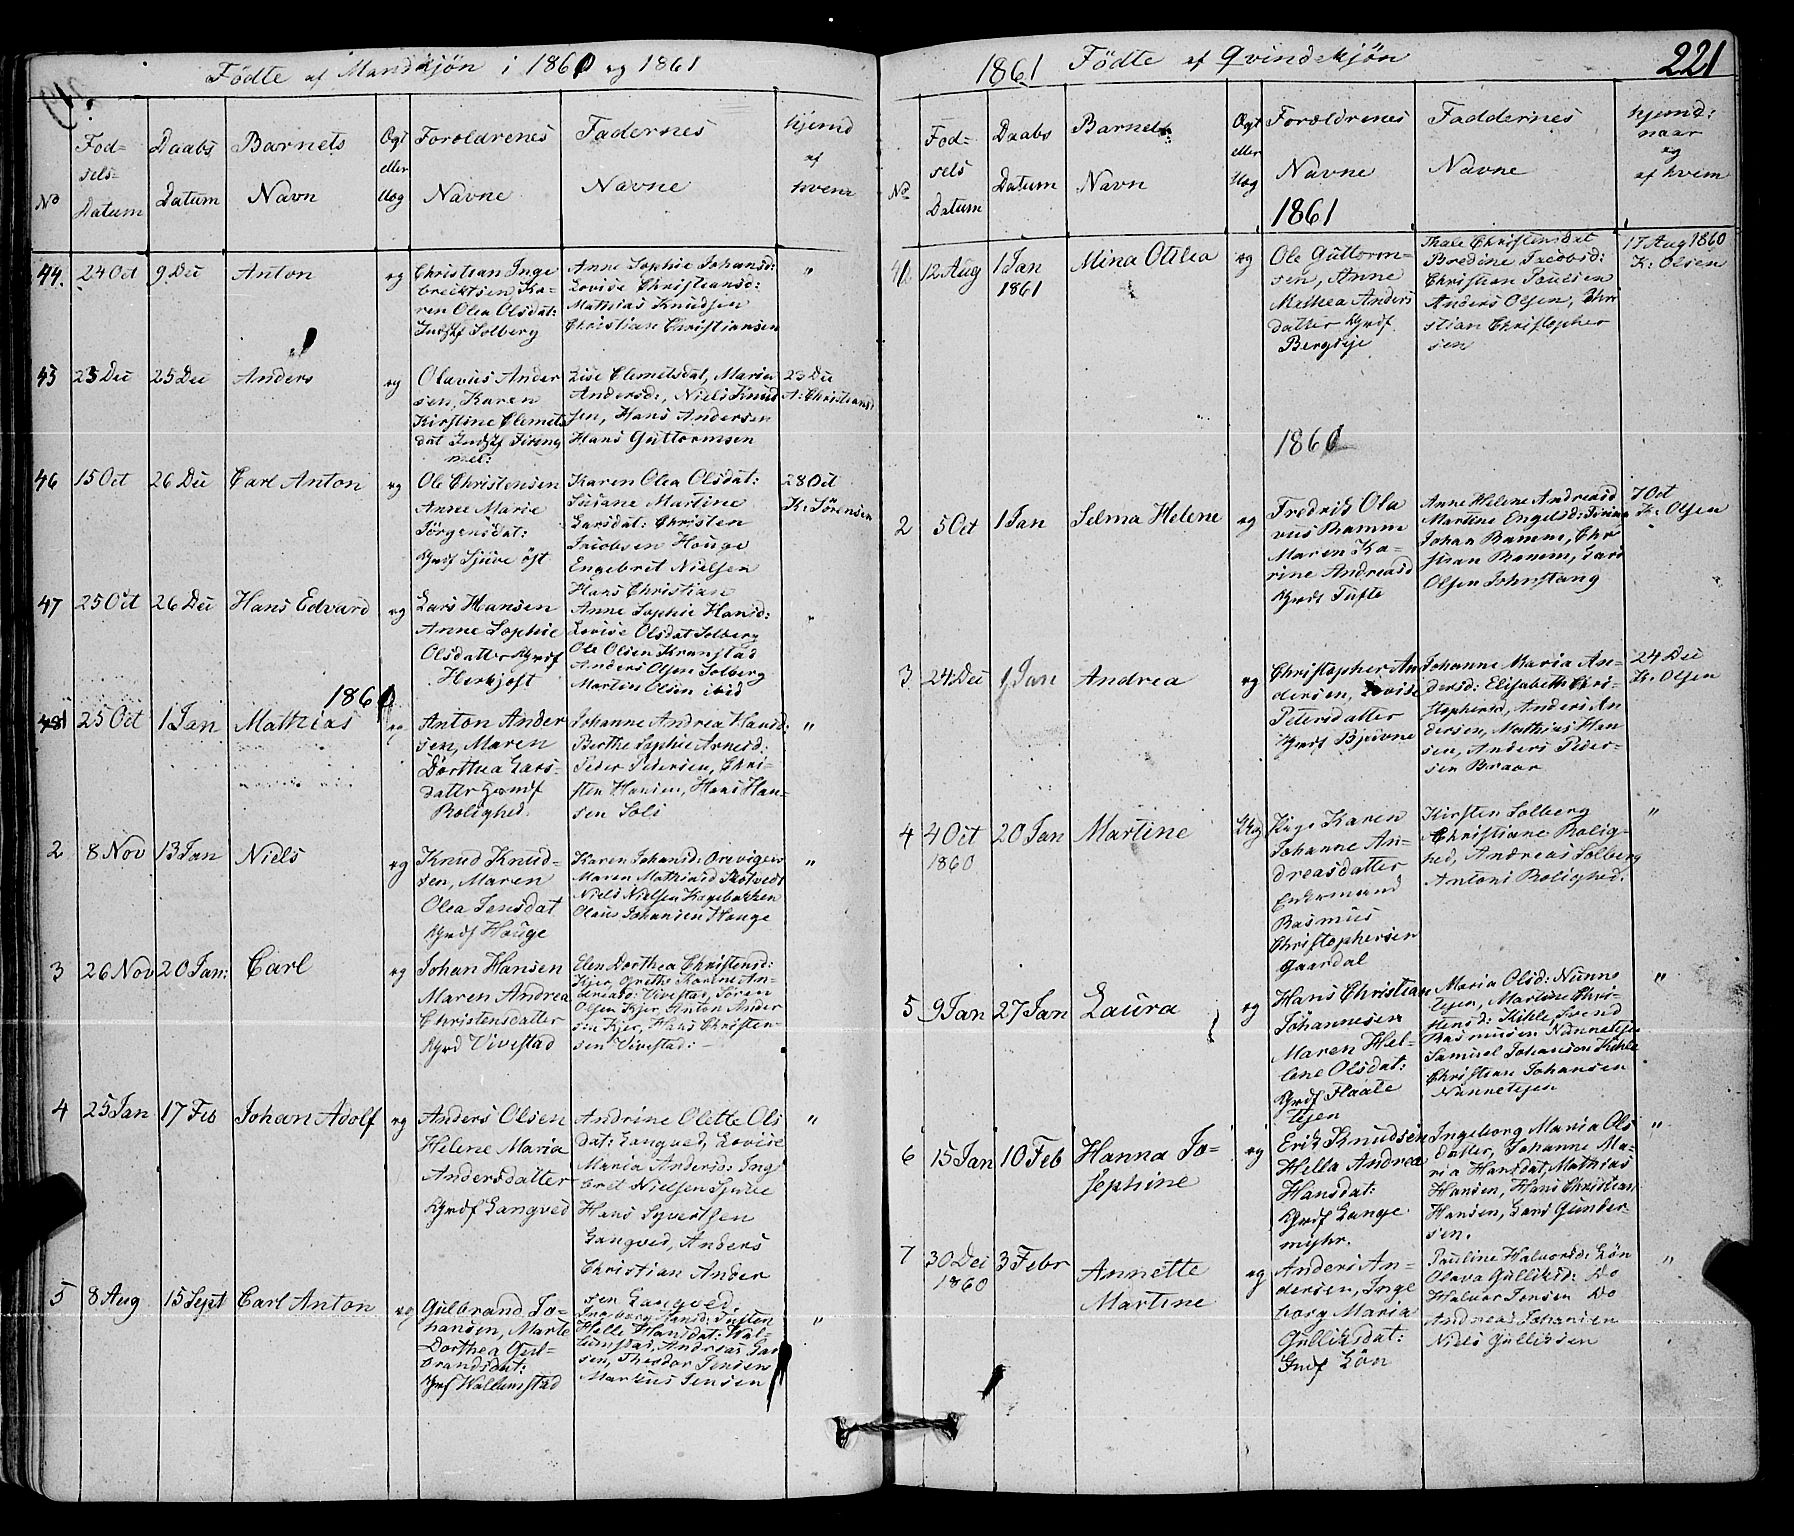 Födte af Mandkjön i 1860 og 1861
No
Fod-
sels-
Datum
Daabs
Datum
Barnets
Navn
Ogt
eller
Uog
Foroldrenes
Navne
Fadernes
Navne
hjemd
af
hvem
44. 24 Oct 9 Dec Anton og
Christian Inge
brecktsen Ka-
ren Olea Olsdat:
Indsf Solberg
Anne Sophie Johansd:
Lovise Christiansd:
Mathias Knudsen
Christian Christiansen
"
45 23 Dec 25 Dec Anders og
Olavus Ander
sen, Karen
Kirstine Clemets
dat Indsf
Lise Clemetsdat, Maria
Andersd:, Niels Knud
sen, Hans Andersen
Hans Guttormsen
23 Dec
A: Christians:
46 15 Oct 26 Dec Carl Anton og
Ole Christensen
Anne Marie
Jörgensdat:
Grdf Sjuve öst
Karen Olea Olsdat:
Susane Martine
Larsdat: Christen
Jacobsen Houge
Engebret Nielsen
28 Oct
K: Sörensen
47 25 Oct 26 Dec Hans Edvard og
Lars Hansen
Anne Sophie
Olsdatter Grdf
Herkjöst
Hans Christian
Anne Sophie Hansd:
Lovise Olsdat Solberg
Ole Olsen Kranstad
Anders Olsen Solberg
Martin Olsen ibid
"
1861
1 25 Oct 1 Jan Mathias og
Anton Ander
sen, Maren
Dorthea Lars-
datter
Rolighed.
Johanne Andrea Hansd:
Berthe Sophie Arnesd:
Peder Pedersen, Chri-
sten Hansen, Hans Han-
sen Soli
"
2 8 Nov 13 Jan Niels og
Knud Knud-
sen, Maren
Olea Jensdat
Grdf Houge
Karen Johansd: Orevigen
Maren Mathiasd Skotvedt
Niels Nielsen
Olaus Johansen Houge
"
3 26 Nov 20 Jan: Carl og
Johan Hansen
Maren Andrea
Christensdatter
Grd Vivestad
Elen Dorthea Christensd:
Kjer, Grethe Karine An-
dreasd: Vivestad, Sören
Olsen Kjer, Anton Ander
sen Kjer, Hans Christen-
sen Vivestad: -
4 25 Jan 17 Feb Johan Adolf og
Anders Olsen
Helene Maria
Andersdatter
Grdf Langved
Andrine Olette Ols
dat: Langved, Lovise
Maria Andersd: Inge
bret Nielsen Sjuve
Hans Syvertsen
Langved, Anders
Christian Ander
sen Langved.
"
5 8 Aug 15 Sept Carl Anton og
Gulbrand Jo-
hansen, Marte
Dorthea Gul-
brandsdat:
Grdf Wallemstad
Ingeborg Hansd:
Helle Hansdat: Wal-
lemstad, Andreas Lar
sen, Theodor Jensen
Markus Jensen
"
1861 Födte af Qvindekjön
221
No
Fod-
sels
Datum
Daabs
Datum
Barnets
Navn
Ogt
eller
Uog
Foroeldrenes
Navne
1861
Faddernes
Navne
hjemd:
naar
og
af hvem
1 12 Aug 1 Jan
1861
Mina Otilia og
Ole Guttorm-
sen, Anne
Mathea Anders
datter Grdf
Bergseje
Thale Christensdat
Bredine Jacobsd:
Christian Paulsen
Anders Olsen, Chri
stian Christopher
sen
17 Aug 1860
K: Olsen
1860
2 5 Oct 1 Jan Selma Helene og
Fredrik Ola
vus Ramm
Maren Ka-
rine Andreasd
Grdf Tufte
Anne Helene Andreasd
Martine Engelsd:
Johan Ramm, Chri
stian Ramm, Lars
Olsen Johnstang
7 Oct
K: Olsen
3 24 Dec 1 Jan Andrea og
Christopher An
dersen, Lovise
Petersdatter
Grdf Bjuvne
Johanne Maria An-
dersd: Elisabeth Chri-
stophersd, Anders An
dersen, Mathias Han
sen, Anders Peder-
sen Braar
24 Dec
K: Olsen
4 4 Oct
1860
20 Jan Martine Uog
Pige Karen
Johanne An-
dreasdatter
Enkemand
Rasmus
Christophersen
Gaardal
Kirsten Solberg
Christiane Rolig-
hed, Andreas Solberg
Antoni Rolighed.
"
5 9 Jan 27 Jan Laura og
Hans Christian
Johannesen
Maren Hel-
ene Olsdat:
Grdf Haale
tejen
Maria Olsd: Nunne
tejen, Martine Chri-
stensd: Kihle, Svend
Rasmusen Nannetejen
Samuel Johansen Kihle
Christian Johansen
Nannetejen
"
6 15 Jan 10 Feb Hanna Jo-
sephine
og
Erik Knudsen
Hella Andrea
Hansdat:
Grdf Lange
myhr.
Ingeborg Maria Ols
datter, Johanne Ma-
ria Hansdat, Mathias
Hansen, Hans Christian
Hansen, Lars Gunder-
sen.
"
7 30 Dec
1860
3 Febr Annette
Martine
og
Anders An-
dersen, Inge
borg Maria
Gulliksdat:
Grdf Lön
Pauline Halvorsd: Lön
Olava Gulliksd: Do
Halvor Jensen Do
Andreas Johansen
Niels Gulliksen
"